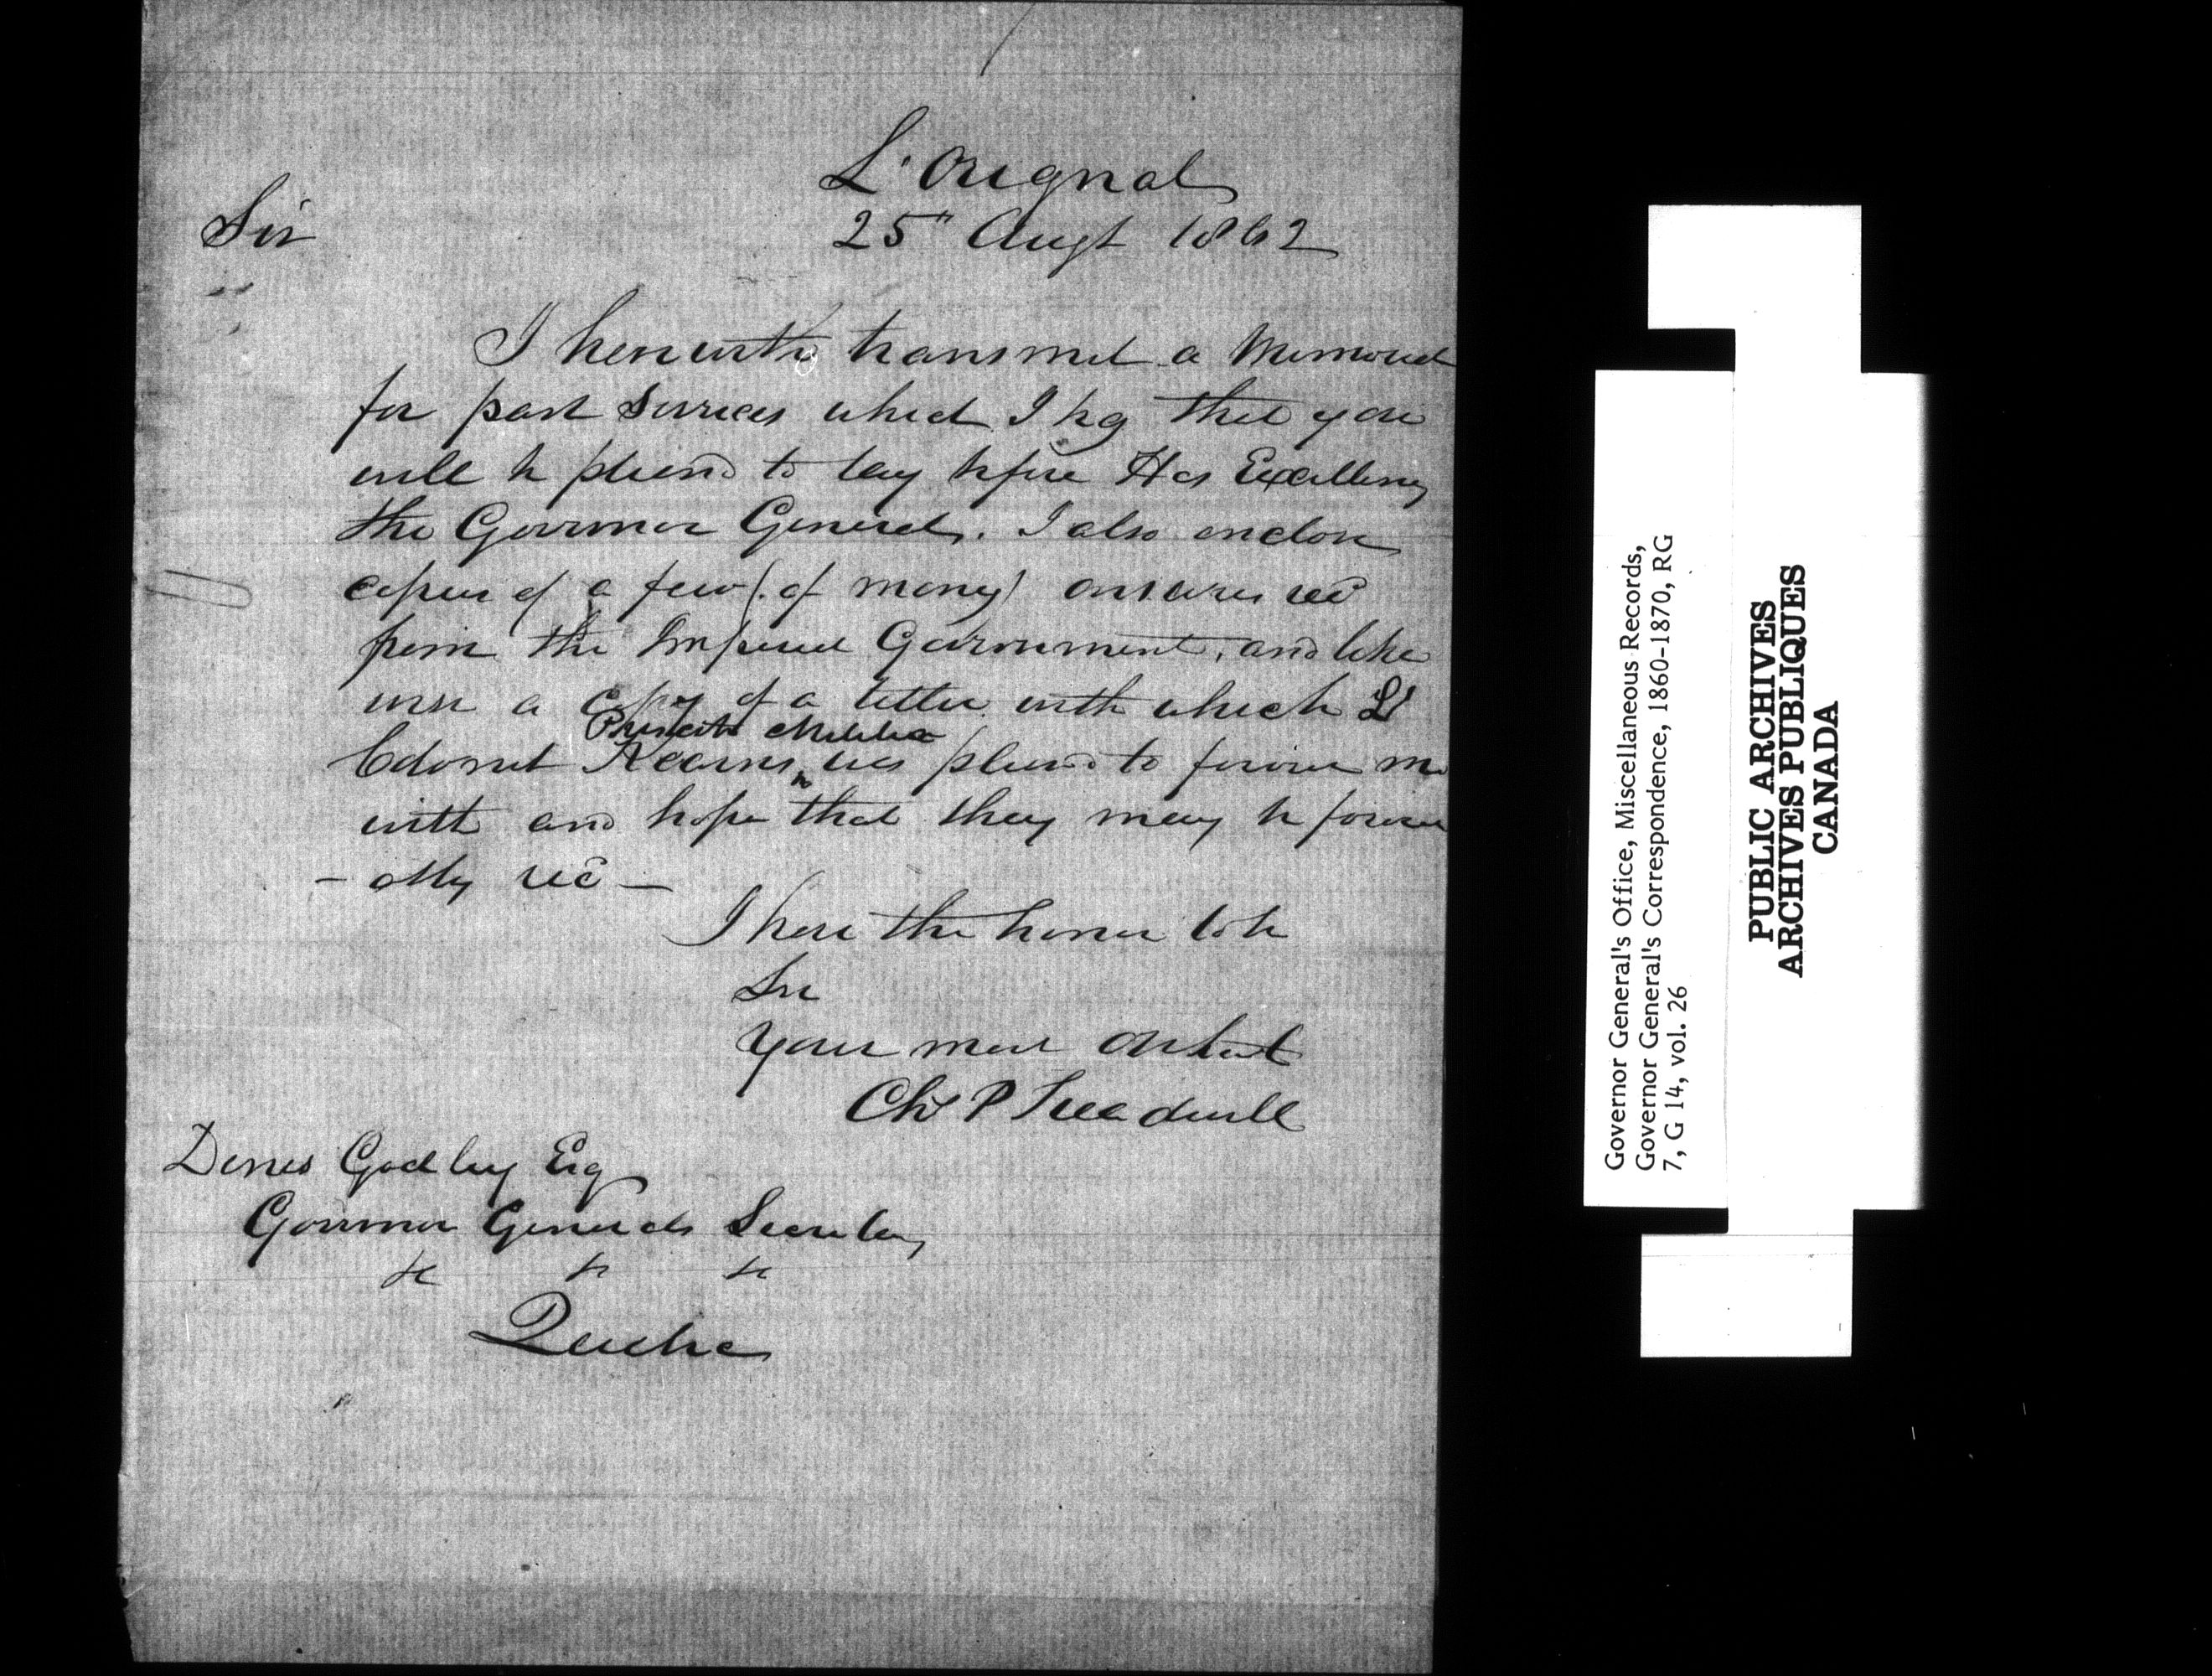 L'Orignal
25" Augt 1862
Sir
I herewith transmit a Memorial
for past services which I beg that you
will be pleased to lay before His Excellency
the Governor General. I also enclose
copies of a few (of many) answers recd
from the Imperial Government, and like
wise a copy of a letter with which Lt
Prescott Militia
Colonel Kearns has pleased to favour me
with and hope that they may be favour
- ably recd -
I have the honor to be
Sir
Your most Obdient
Chs P Treadwell
Denis Godley Esq
Governor Generals Secretary
&c &c &c
Quebec
Governor General's Office, Miscellaneous Records,
Governor General's Correspondence, 1860-1870, RG
7, G 14, vol. 26
PUBLIC ARCHIVES
ARCHIVES PUBLIQUES
CANADA